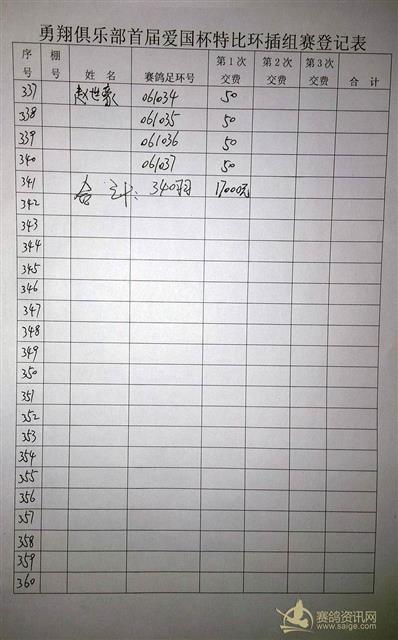 勇翔俱乐部首届爱国杯特比环插组赛登记表
序号 棚号 姓名 赛鸽足环号 第1次交费 第2次交费 第3次交费 合计
337 赵世豪 061034 50
338 061035 50
339 061036 50
340 061037 50
341 合计: 340羽 17000元
342
343
344
345
346
347
348
349
350
351
352
353
354
355
356
357
358
359
360
赛鸽资讯网
www.saige.com